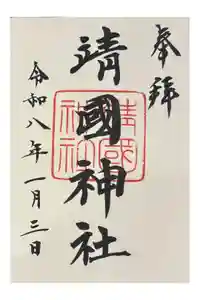 奉拝
靖國神社
靖國神社
令和八年一月三日